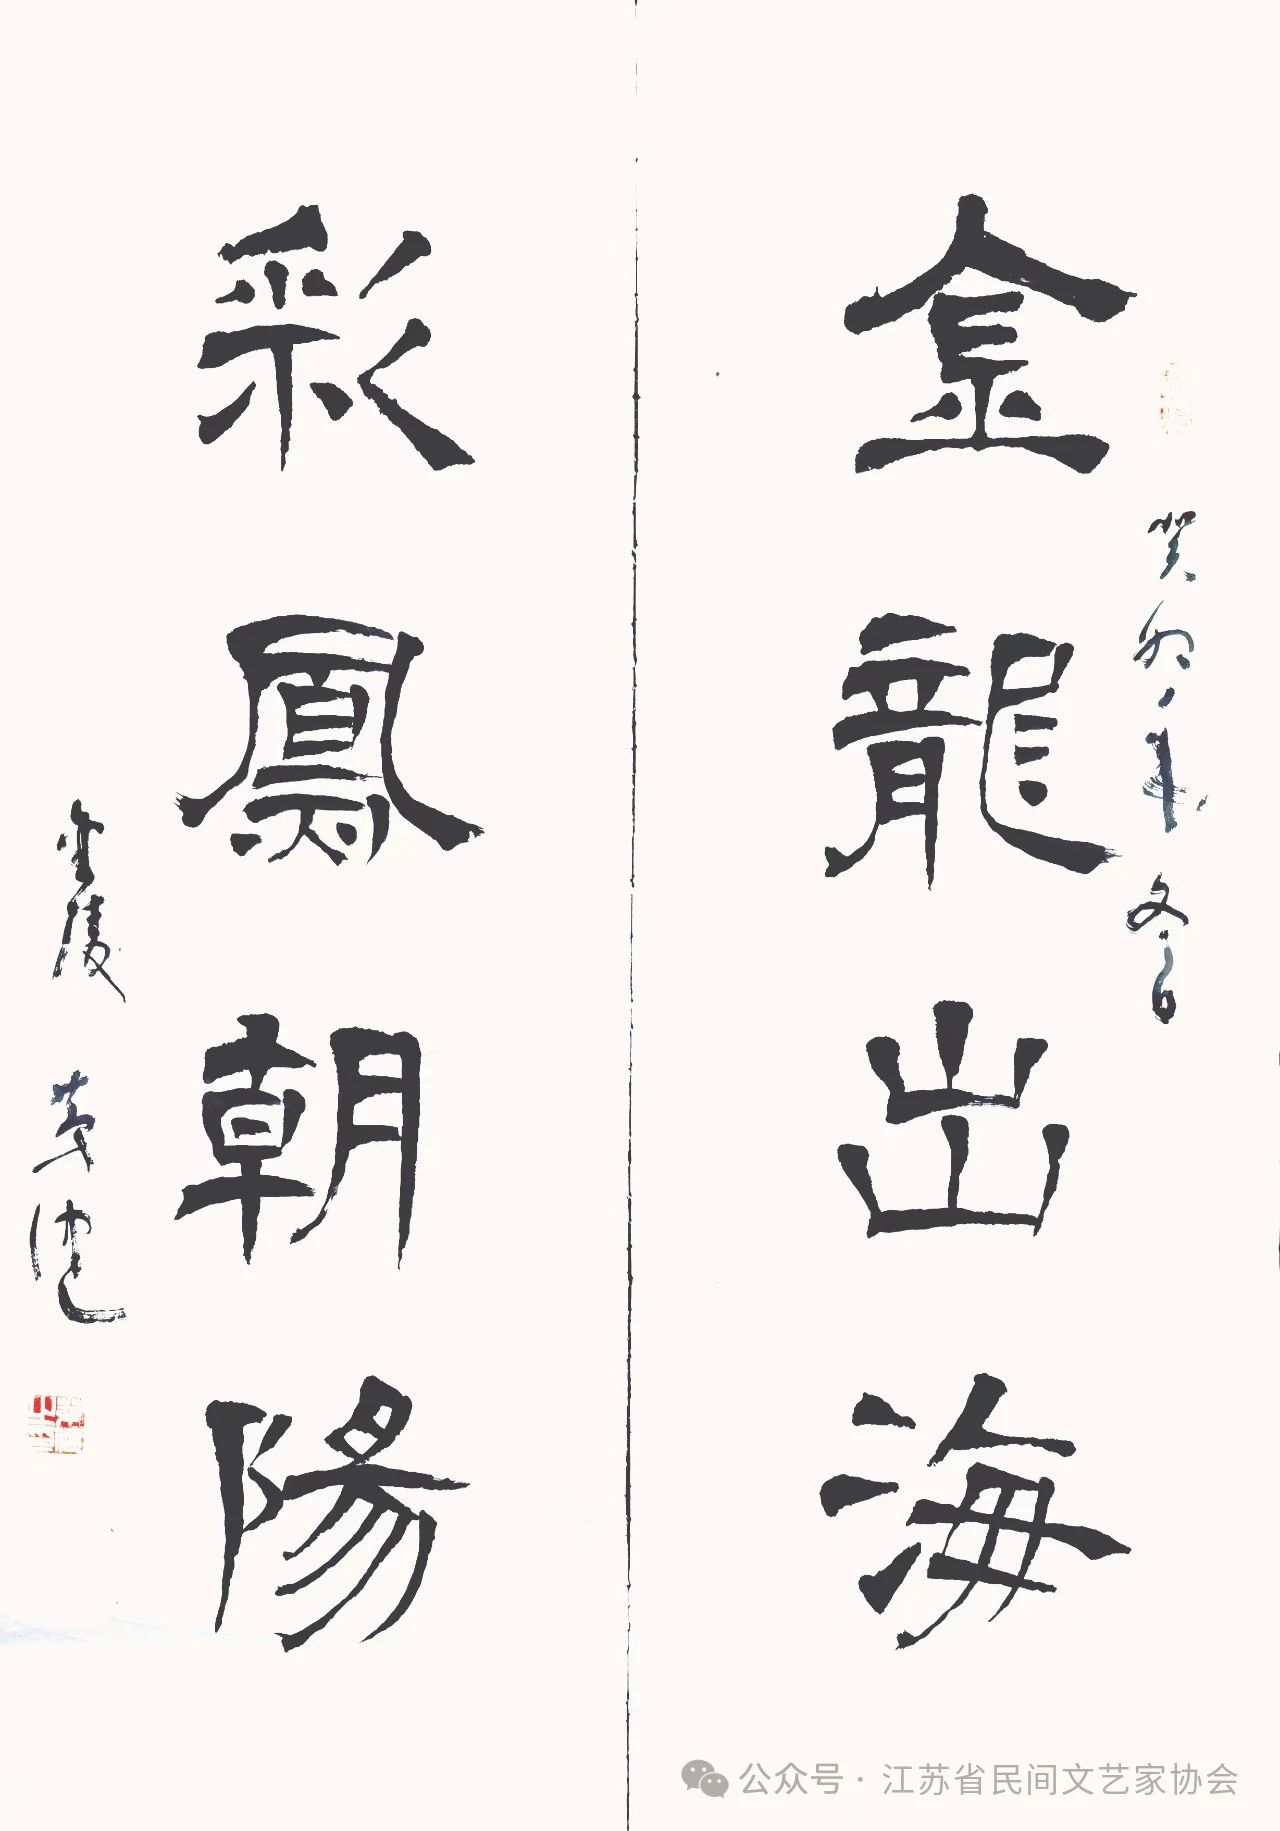 金龍出海
癸卯年冬日
彩鳳朝陽
金陵
公众号·江苏省民间文艺家协会